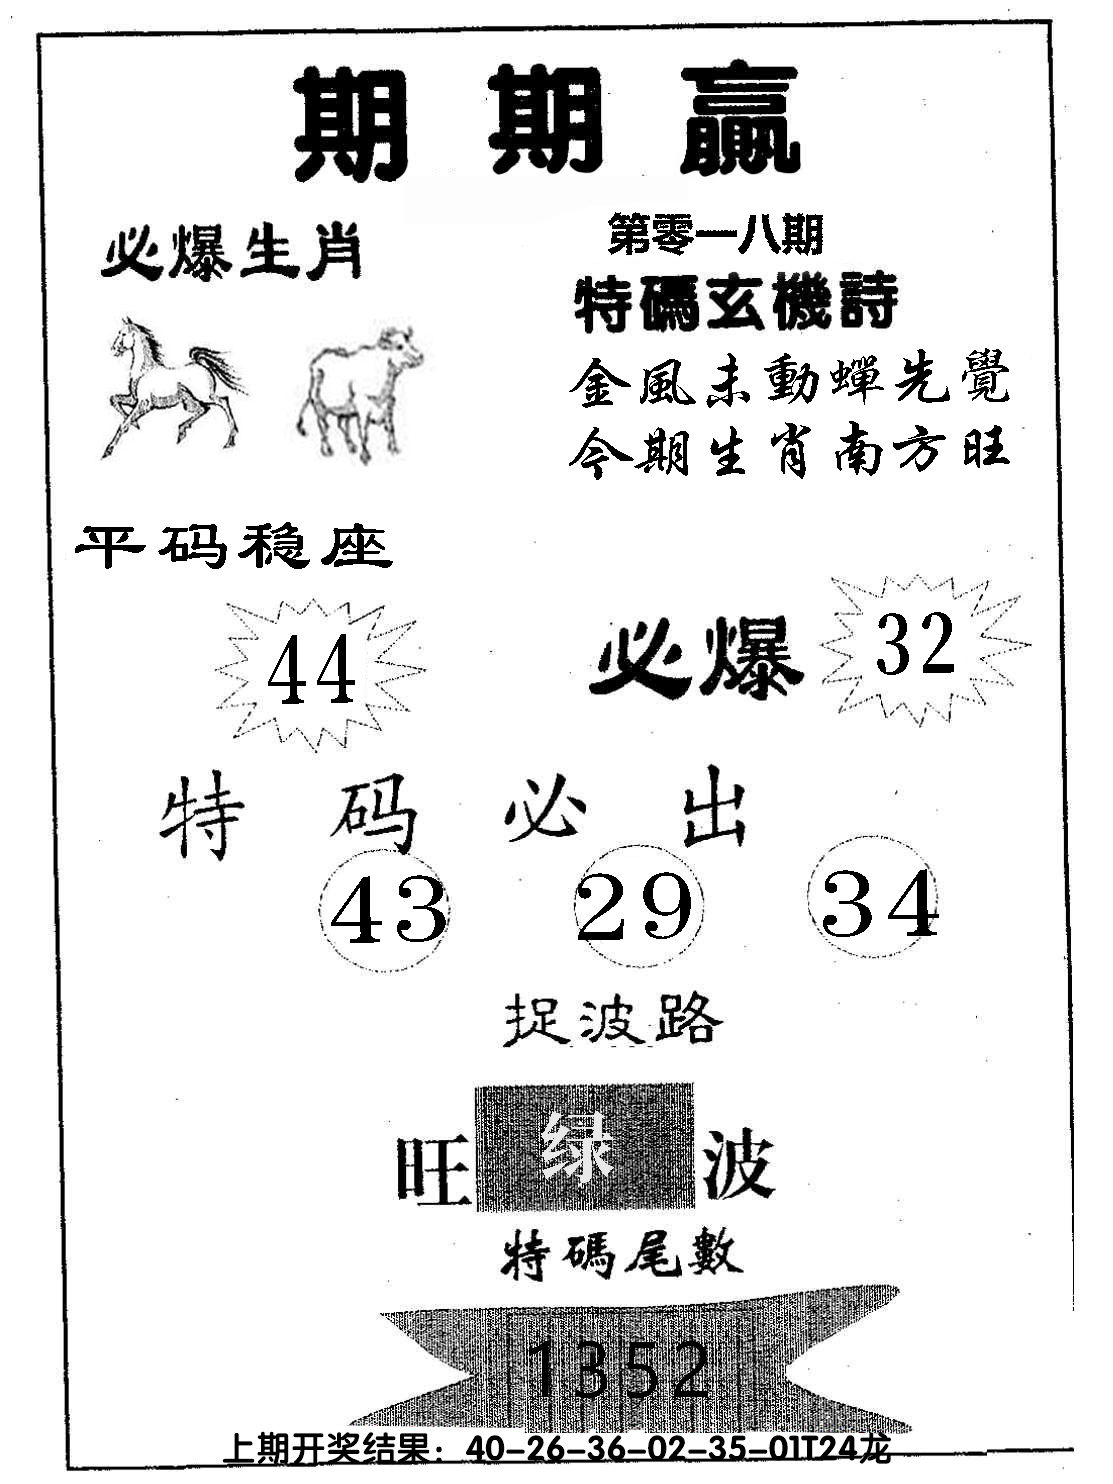 期期赢
必爆生肖
第零一八期
特碼玄機詩
金風未動蟬先覺
今期生肖南方旺
平码稳座
44
必爆 32
特码必出
43 29 34
捉波路
旺 绿 波
特碼尾數
1352
上期开奖结果：40-26-36-02-35-01T24龙